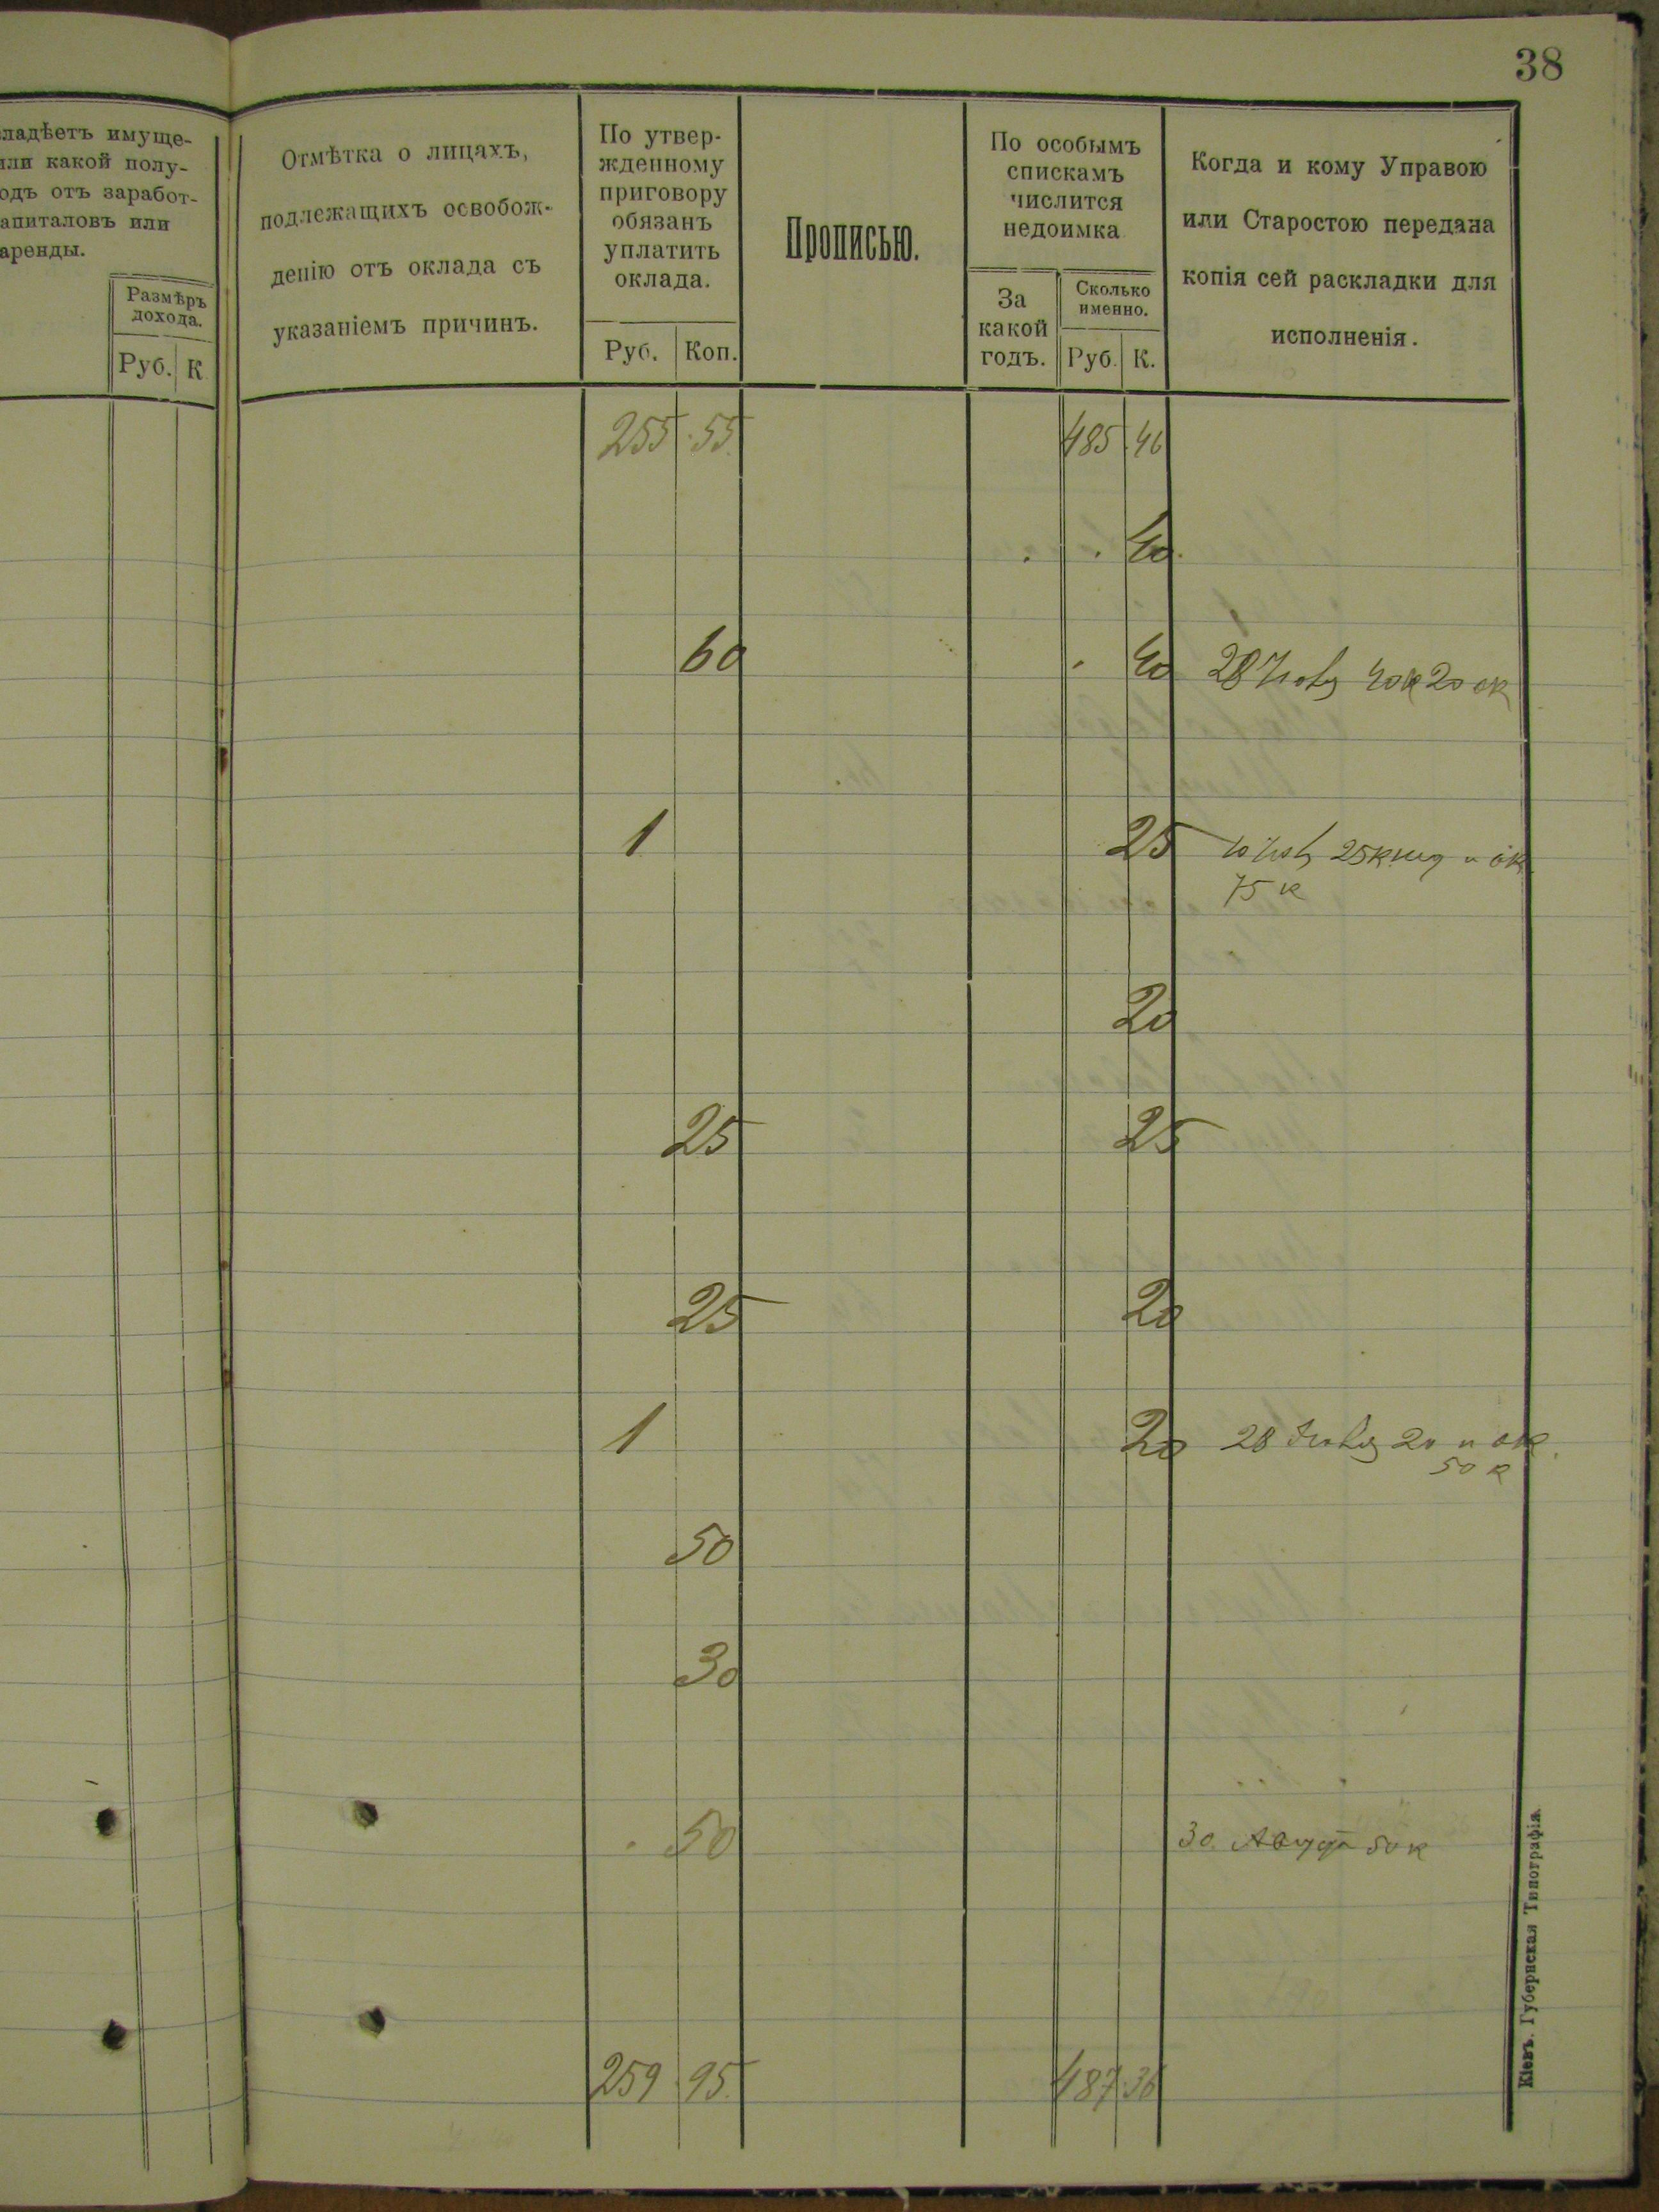 38
ладѣетъ имуще-
или какой полу-
одъ отъ заработ-
апиталовъ или
аренды.
Размѣръ
дохода.
Руб. К
Отмѣтка о лицахъ,
подлежащихъ освобож-
денію отъ оклада съ
указаніемъ причинъ.
По утвер-
жденному
приговору
обязанъ
уплатить
оклада.
Руб. Коп.
Прописью.
По особымъ
спискамъ
числится
недоимка
За
какой
годъ.
Сколько
именно.
Руб. К.
Когда и кому Управою
или Старостою передана
копія сей раскладки для
исполненія.
255 55 485 46
40
60 40 28 40к 20 ок
1 25 25к и ок
75 к
20
25 25
25 20
1 20 28 20 и ок
50 к
50
30
50 30 Август 50 к
259 95 487 36
Кіевъ. Губернская Типографія.